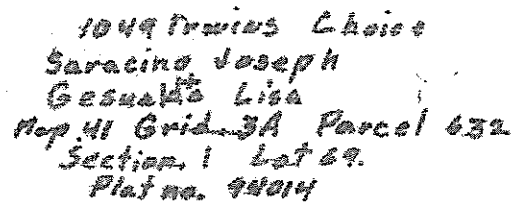 1049 Prarius Choice
Saracino Joseph
Gesualdo Lisa
Map 41 Grid 3A Parcel 632
Section 1 Lot 69.
Plat no. 94014